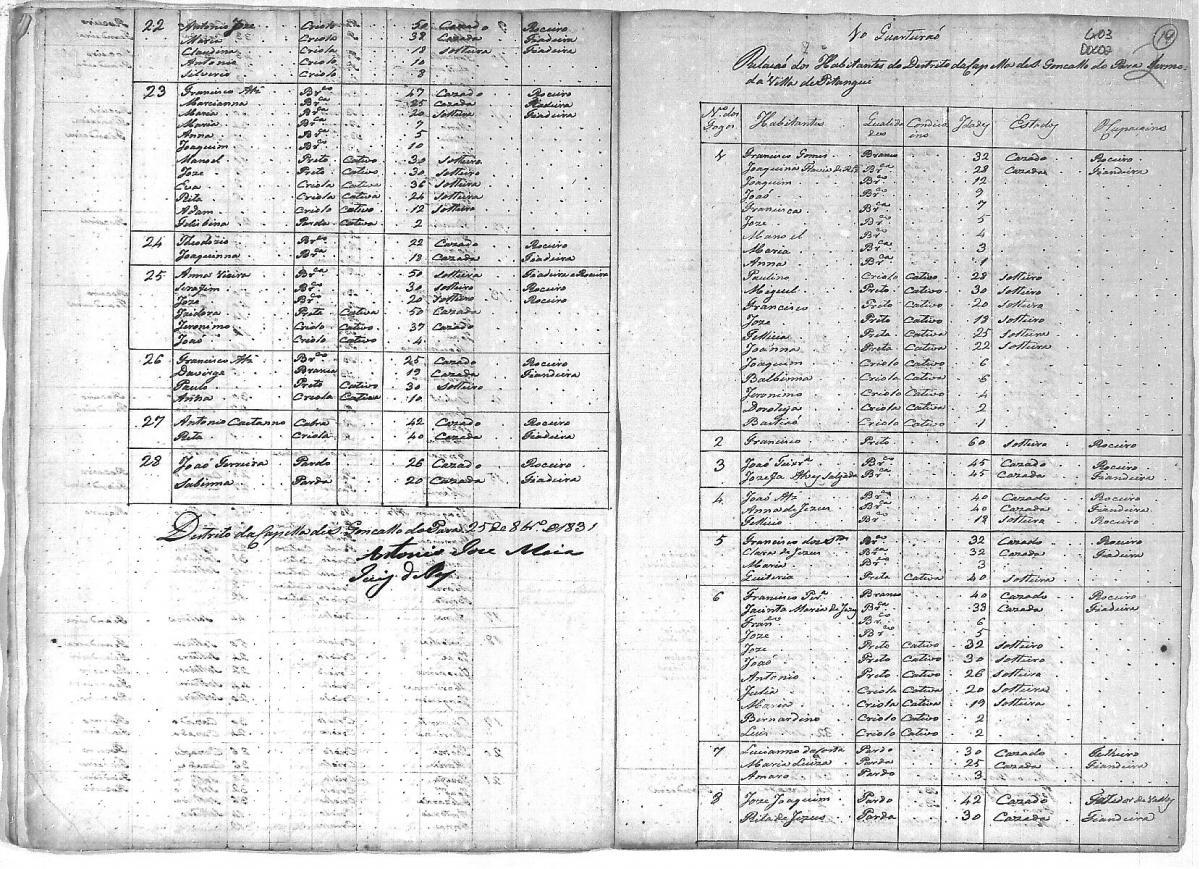 22 Antonio Joze Criolo 50 Cazado Roceiro
Maria Criola 38 Cazada Fiadeira
Claudina Criola 18 Solteira Fiadeira
Antonia Criola 10
Silverio Criolo 8
23 Francisco Alz Br.co 47 Cazado Roceiro
Marcianna Br.ca 25 Cazada Fiadeira
Maria Br.ca 20 Solteira Fiadeira
Maria Br.ca 7
Anna Br.ca 5
Joaquim Br.co 10
Manoel Preto Cativo 30 Solteiro
Joze Preto Cativo 30 Solteiro
Eva Criola Cativa 36 Solteira
Rita Criola Cativa 24 Solteira
Adam Criolo Cativo 12 Solteiro
Felisbina Parda Cativa 2
24 Theodozio Br.co 22 Cazado Roceiro
Joaquinna Br.ca 18 Cazada Fiadeira
25 Anna Vieira Br.ca 50 Solteira Fiadeira e Roceira
Serafim Br.co 30 Solteiro Roceiro
Joze Br.co 20 Solteiro Roceiro
Izidora Preta Cativa 50 Cazada
Jeronimo Criolo Cativo 37 Cazado
Joaõ Criolo Cativo 4
26 Francisco Alz Br.co 25 Cazado Roceiro
Davirge Branca 19 Cazada Fiandeira
Paulo Preto Cativo 30 Solteiro
Anna Criola Cativa 10
27 Antonio Caetanno Cabra 42 Cazado Roceiro
Rita Criola 40 Cazada Fiadeira
28 Joaõ Ferreira Pardo 26 Cazado Roceiro
Sabinna Parda 20 Cazada Fiadeira
Distrito da Capella de S Goncallo do Para 25 de 8br.o 1831
Antonio Joze
Juiz de Paz
19
Relacaõ dos Habitantes do Distrito da Capella de S. Goncallo do Para Termo
da Villa de Pitangue
N.o dos Fogos Habitantes Qualidades Condicoins Idades Estados Ocupacoins
1 Francisco Gomes Branco 32 Cazado Roceiro
Joaquina Br.ca 28 Cazada Fiandeira
Joaquim Br.co 12
Joaõ Br.co 9
Francisca Br.ca 7
Joze Br.co 5
Manoel Br.co 4
Maria Br.ca 3
Anna Br.ca 1
Paulino Criolo Cativo 28 Solteiro
Miguel Preto Cativo 30 Solteiro
Francisco Preto Cativo 20 Solteiro
Joze Preto Cativo 18 Solteiro
Felicia Preta Cativa 25 Solteira
Joanna Preta Cativa 22 Solteira
Joaquim Criolo Cativo 6
Balbinna Criola Cativa 5
Jeronimo Criolo Cativo 4
Doroteja Criola Cativa 2
Criolo Cativo 1
2 Francisco Preto 60 Solteiro Roceiro
3 Joaõ Teixr.a Br.co 45 Cazado Roceiro
Jozefa Alvez Salgada Br.ca 45 Cazada Fiandeira
4 Joaõ Alz Br.co 40 Cazado Roceiro
Anna de Jezus Br.ca 40 Cazada Fiandeira
Br.co 18 Solteiro Roceiro
5 Francisco dos S.tos Br.co 32 Cazado Roceiro
Clara de Jezus Br.ca 32 Cazada Fiadeira
Maria Br.ca 3
Quiteria Preta Cativa 40 Solteira
6 Francisco Per.a Branco 40 Cazado Roceiro
Jacinta Maria de Jezus Br.ca 33 Cazada Fiadeira
Fran.co Br.co 6
Joze Br.co 5
Joze Preto Cativo 32 Solteiro
Joaõ Preto Cativo 30 Solteiro
Antonio Preto Cativo 26 Solteiro
Julia Criola Cativa 20 Solteira
Maria Criola Cativa 19 Solteira
Bernardino Criolo Cativo 2
Luis Criolo Cativo 2
7 Lucianno da Costa Pardo 30 Cazado
Maria Luiza Parda 25 Cazada Fiandeira
Amaro Pardo 3
8 Joze Joaquim Pardo 42 Cazado
Rita de Jezus Parda 30 Cazada Fiandeira